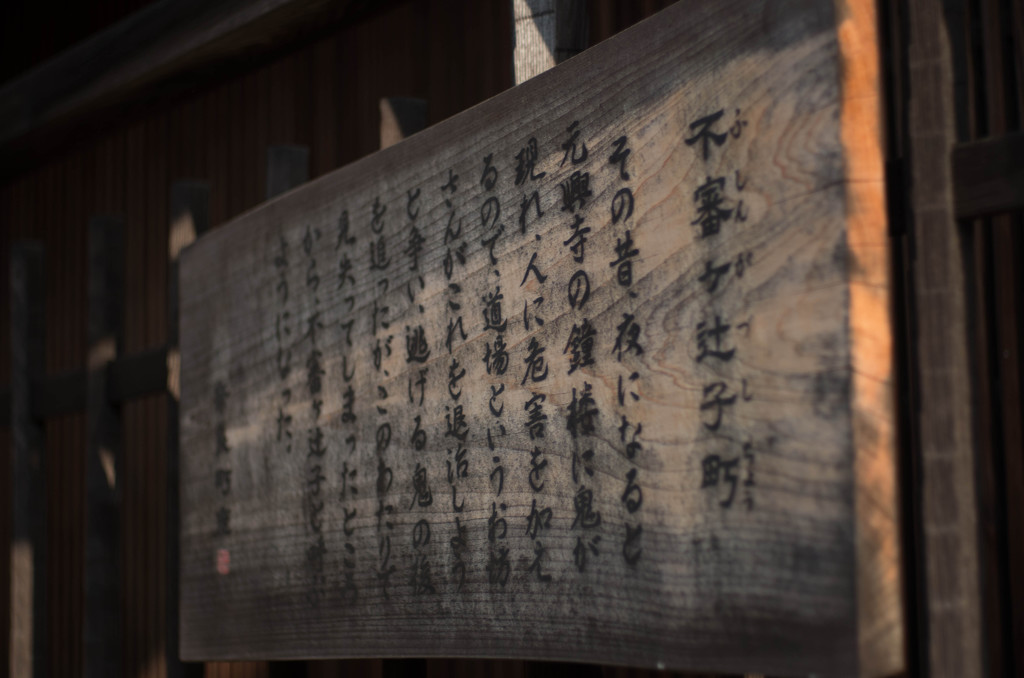 不審ヶ辻子町
ふしんがづしちょう
その昔、夜になると
元興寺の鐘楼に鬼が
現れ、人に危害を加え
るので、道場というお坊
さんがこれを退治しよう
と争い、逃げる鬼の後
を追ったが、このあたりで
見失ってしまったとこ
から、不審ヶ辻子と
ようになった。